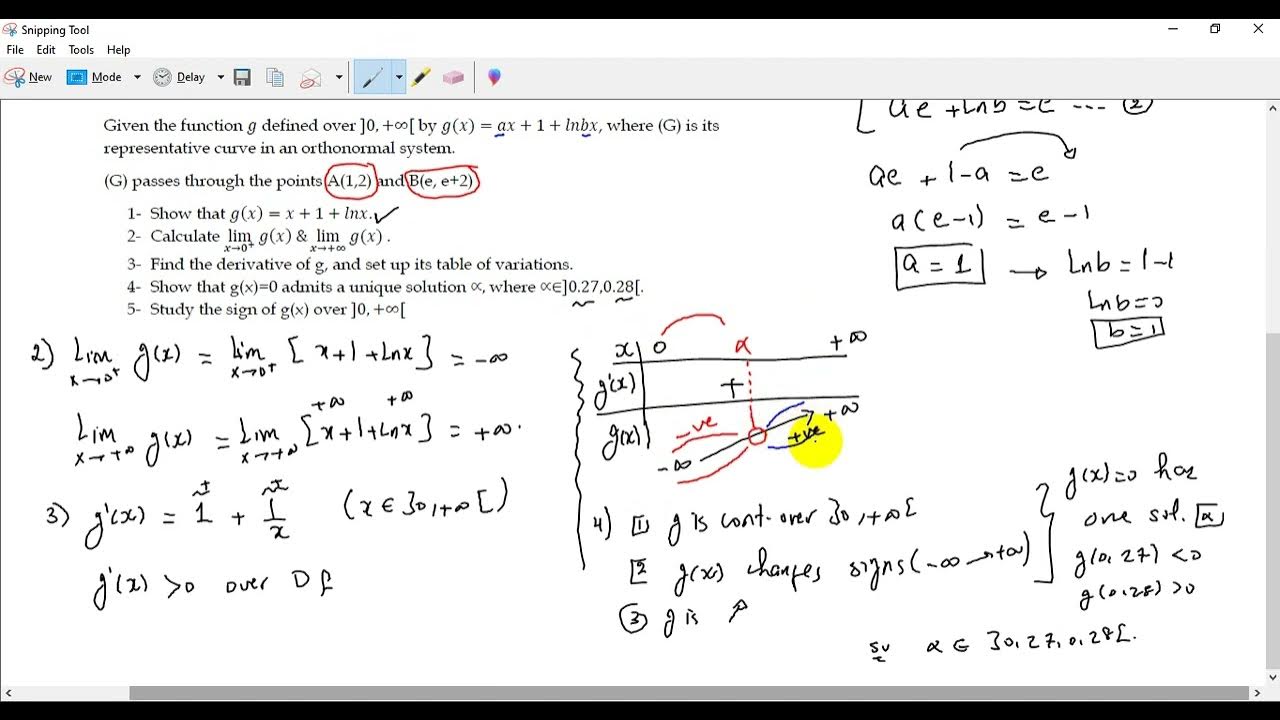 Snipping Tool
File Edit Tools Help
New Mode Delay
Given the function g defined over ]0, +∞[ by g(x) = ax + 1 + lnbx, where (G) is its
representative curve in an orthonormal system.
(G) passes through the points A(1,2) and B(e, e+2)
1- Show that g(x) = x + 1 + lnx.
2- Calculate lim x→0⁺ g(x) & lim x→+∞ g(x) .
3- Find the derivative of g, and set up its table of variations.
4- Show that g(x)=0 admits a unique solution ∝, where ∝∈]0.27,0.28[.
5- Study the sign of g(x) over ]0, +∞[
ae + Lnb = e ---- ②
ae + 1-a = e
a(e-1) = e-1
a = 1 → Lnb = 1-1
Lnb = 0
b = 1
2) Lim x→0⁺ g(x) = lim x→0⁺ [x+1+Lnx] = -∞
+∞ +∞
Lim x→+∞ g(x) = Lim x→+∞ [x+1+Lnx] = +∞.
3) g'(x) = 1 + 1/x (x ∈ ]0,+∞[)
g'(x) >0 over Df
x 0 α +∞
g'(x) +
g(x) -∞ -ve +ve +∞
4) 1 g is cont. over ]0,+∞[
2 g(x) changes signs (-∞ → +∞)
③ g is ↗
g(x)=0 has
one sol. α
g(0,27) <0
g(0,28) >0
so α ∈ ]0,27,0,28[.